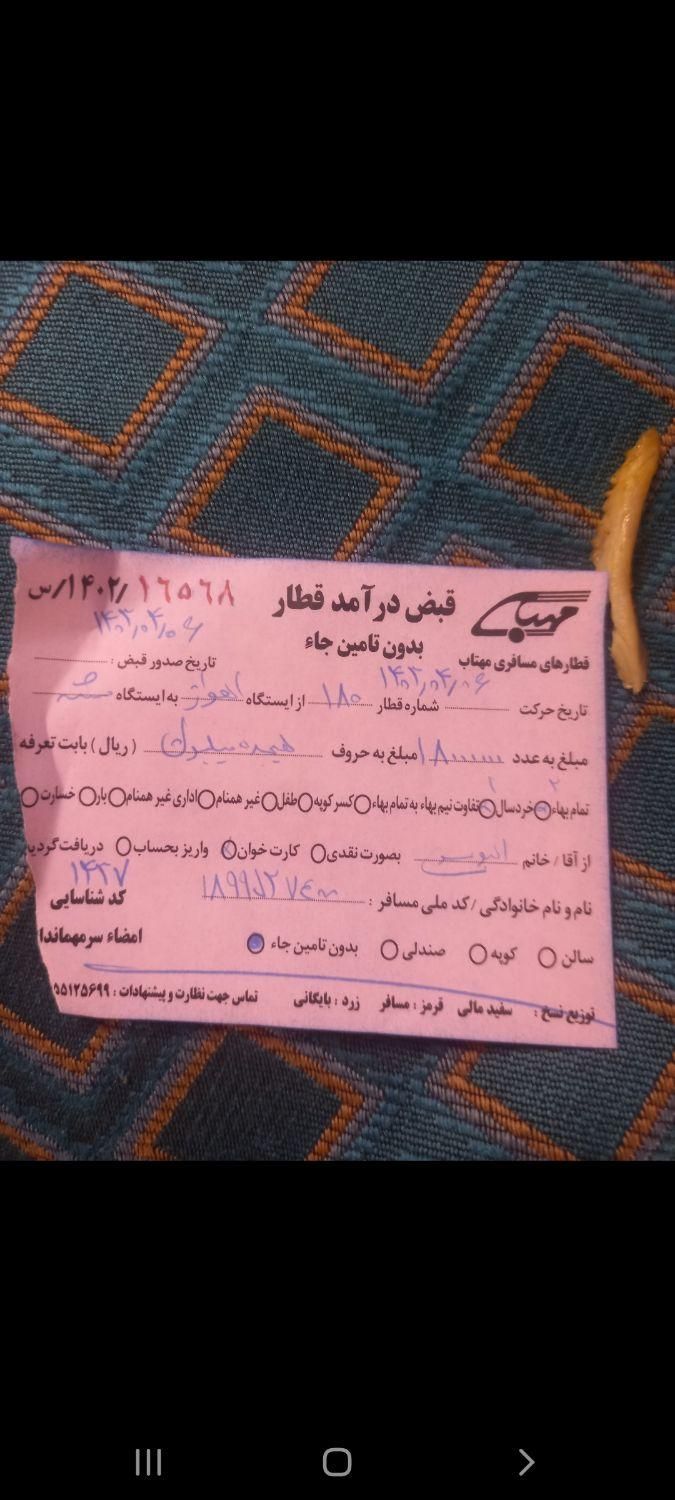 مهتاب
قطارهای مسافری مهتاب
قبض درآمد قطار
بدون تامین جاء
۱۴۰۲/۱۶۵۶۸/س
۱۴۰۳,۰۴,۰۶
تاریخ صدور قبض :
۱۴۰۳,۰۴,۰۶
تاریخ حرکت شماره قطار ۱۸۰ از ایستگاه اهواز به ایستگاه
مبلغ به عدد مبلغ به حروف هیجده میلیون ( ریال ) بابت تعرفه
۲ ۱
تمام بهاء خردسال تفاوت نیم بهاء به تمام بهاء کسر کوپه طفل غیر همنام اداری غیر همنام بار خسارت
از آقا / خانم بصورت نقدی کارت خوان واریز بحساب دریافت گردید
نام و نام خانوادگی / کد ملی مسافر :
۱۴۲۷
کد شناسایی
امضاء سرمهماندا
سالن کوپه صندلی بدون تامین جاء
توزیع نسخ : سفید مالی قرمز : مسافر زرد : بایگانی تماس جهت نظارت و پیشنهادات : ۵۵۱۲۵۶۹۹